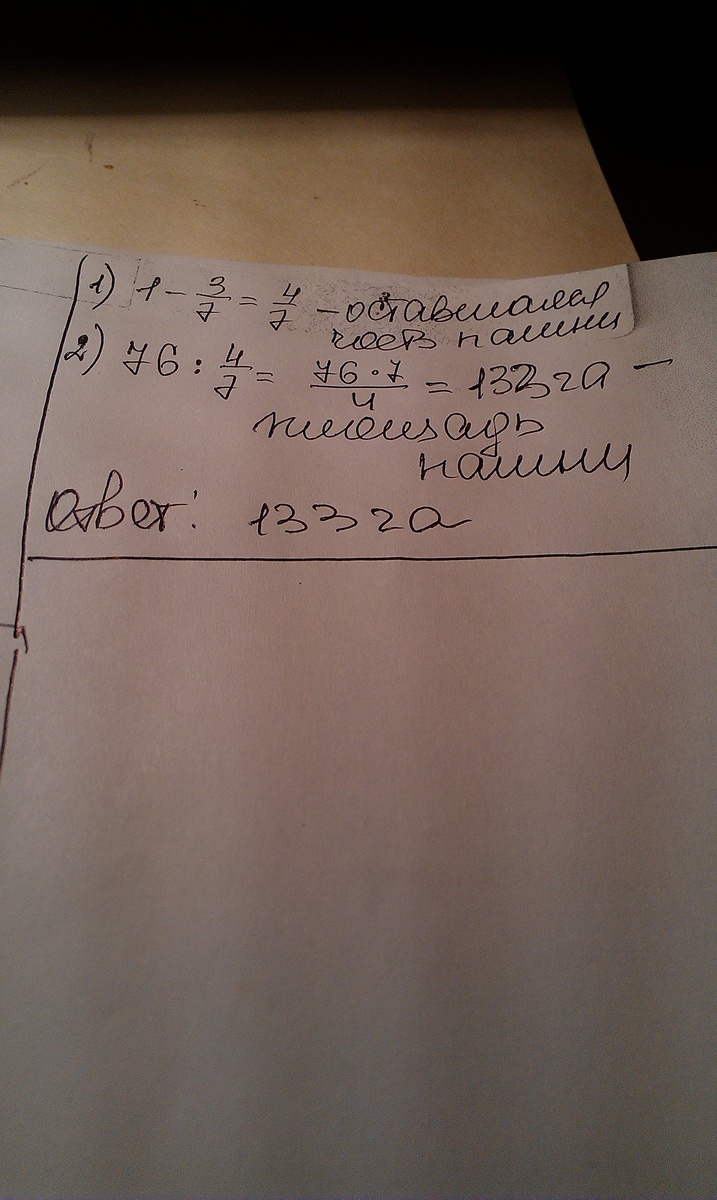 1) 1 - 3/7 = 4/7 - оставшаяся
часть пашни
2) 76 : 4/7 = 76 · 7/4 = 133 га -
площадь
пашни
Ответ: 133 га